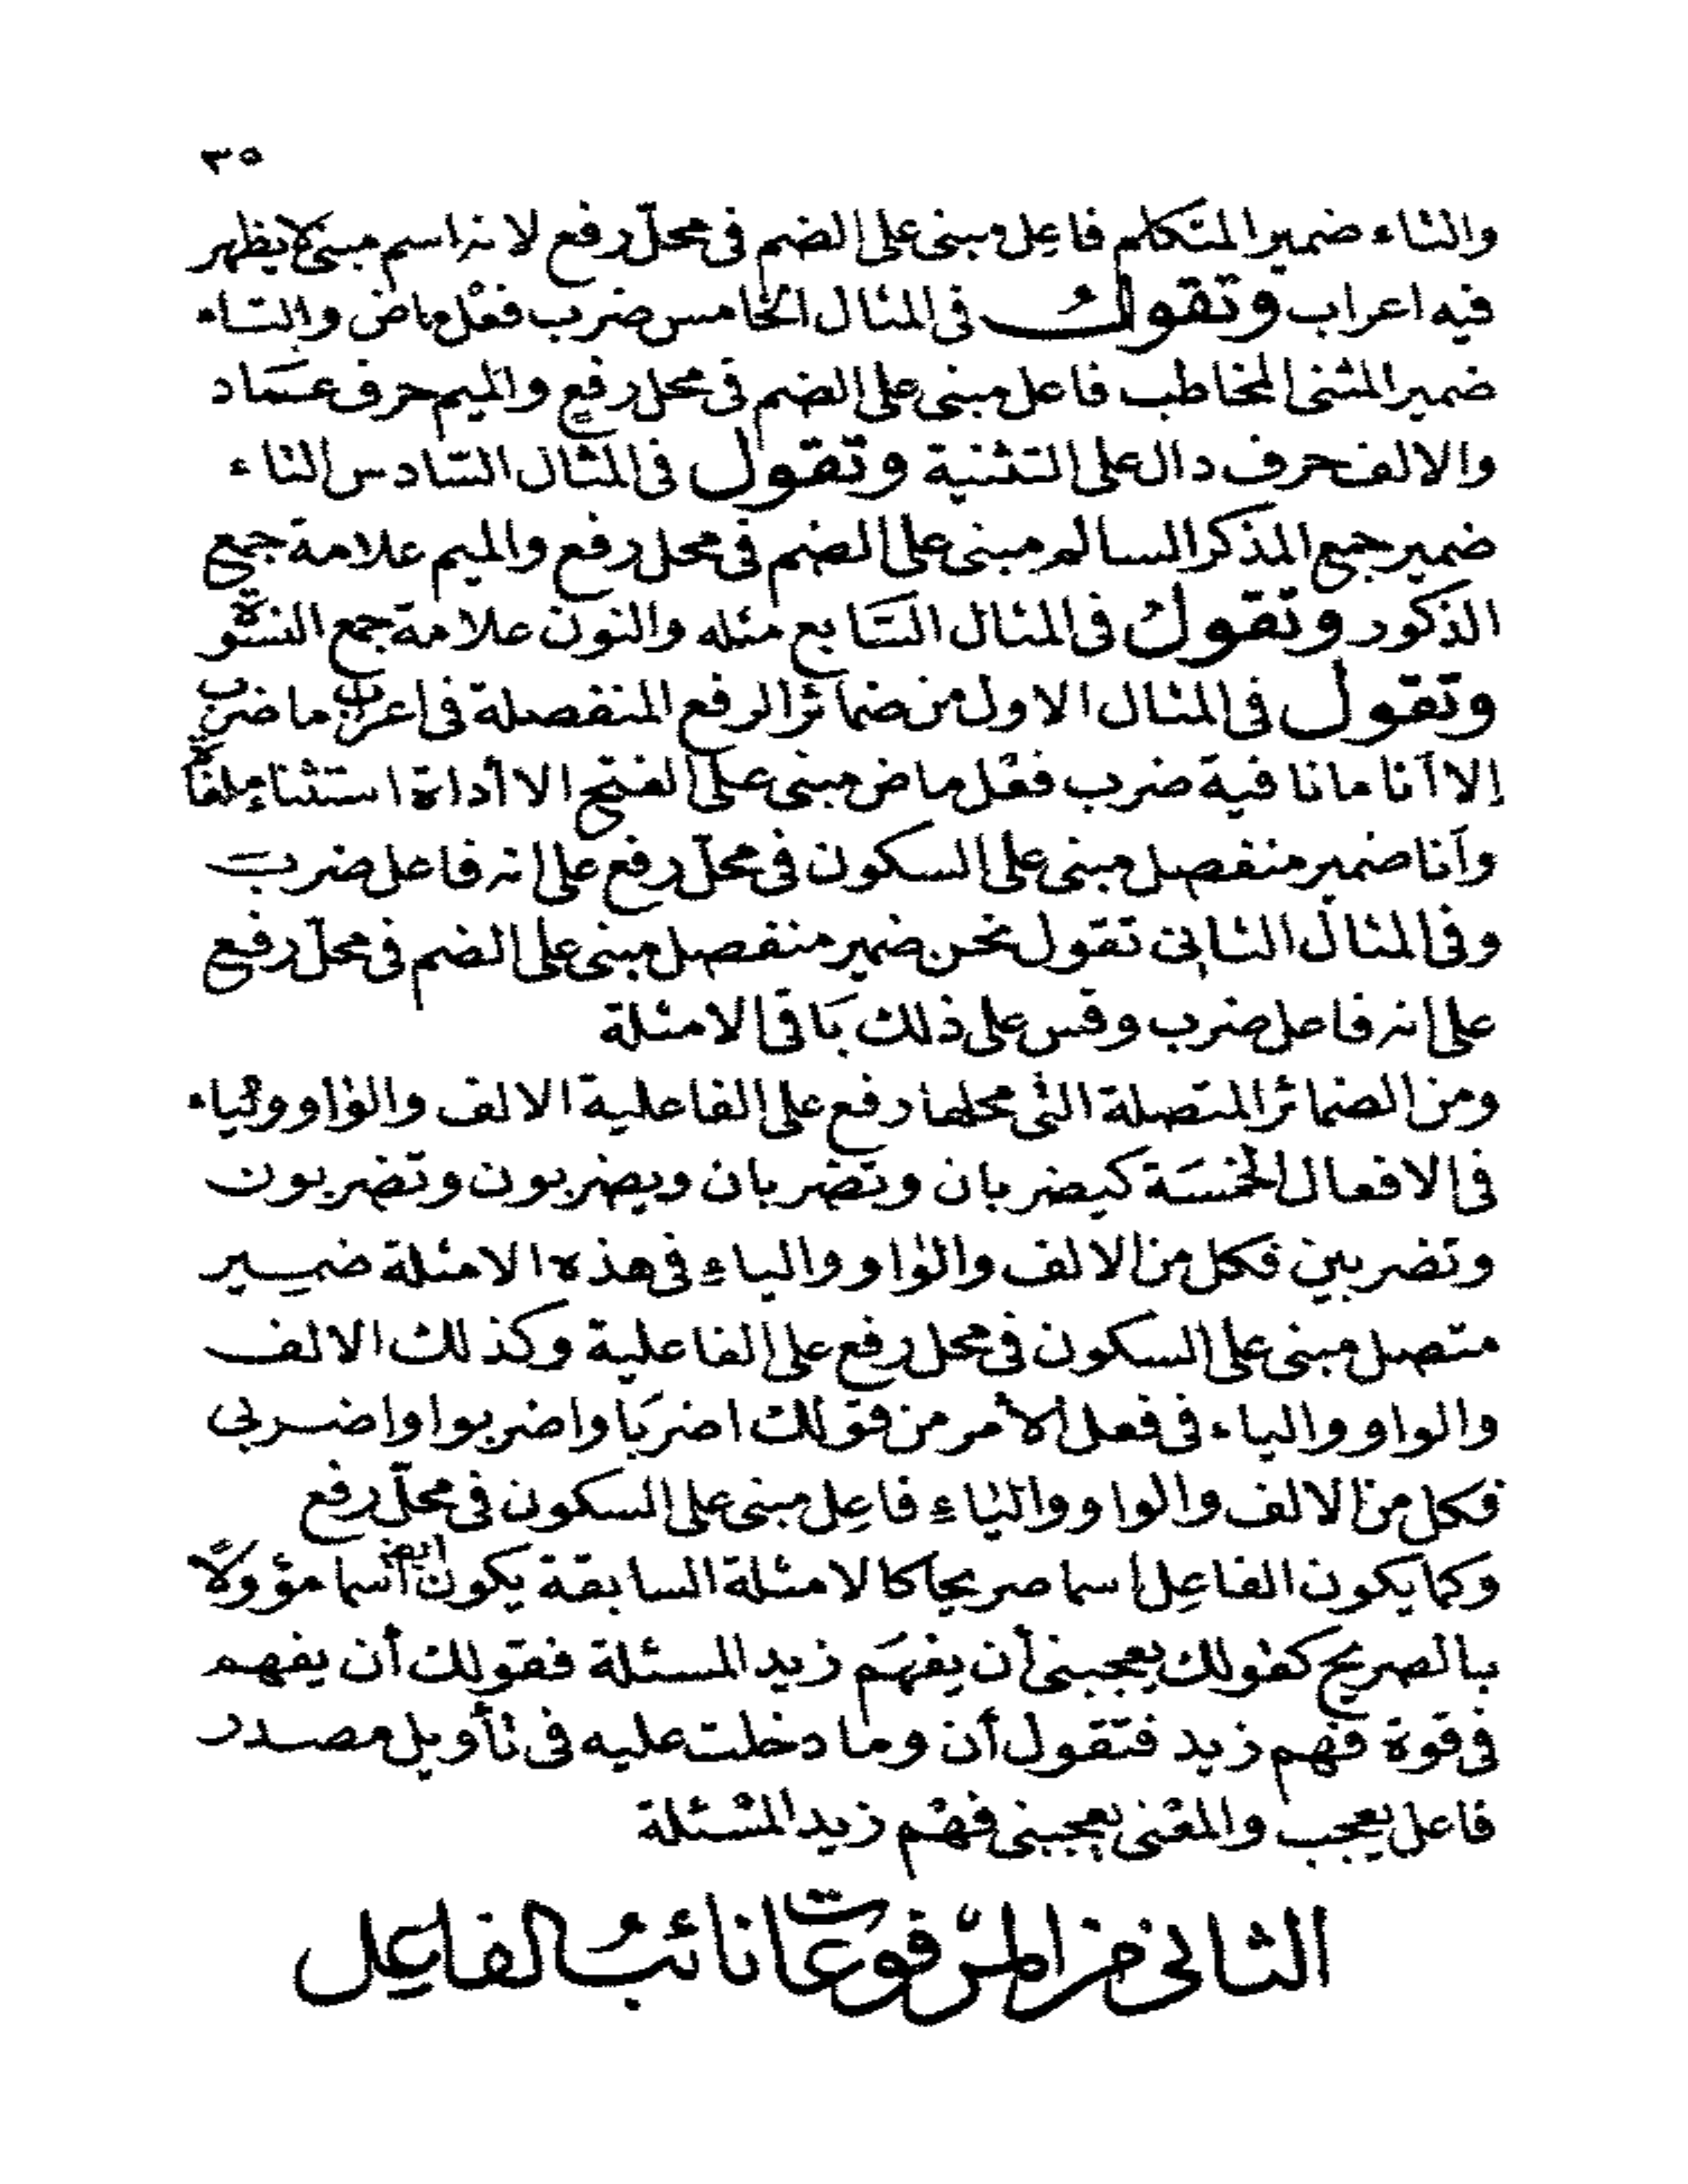 ٣٥
والتاء ضمير المتكلم فاعِل مبنى على الضم فى محلّ رفع لانه اسم مبنى لا يظهر
فيه اعراب وتقولُ فى المثال الخامس ضرب فعْل ماض والتاء
ضمير المثنى المخاطب فاعل مبنى على الضم فى محل رفع والميم حرف عمَاد
والالف حرف دال على التثنية وتقول فى المثال السادس التاء
ضمير جمع المذكر السالم مبنى على الضم فى محل رفع والميم علامة جمع
الذكور وتقولُ فى المثال السَابع مثله والنون علامة جمع النسوة
وتقول فى المثال الاول من ضمائر الرفع المنفصلة فى اعراب ما ضرب
إلا أنا ما نافية ضرب فعْل ماض مبنى على الفتح الا أداة استثناء ملغاة
وأنا ضمير منفصل مبنى على السكون فى محلّ رفع على انه فاعل ضرب
وفى المثال الثانى تقول نحن ضمير منفصل مبنى على الضم فى محلّ رفع
على انه فاعل ضرب وقس على ذلك بَاقى الامثلة
ومن الضمائر المتصلة التى محلها رفع على الفاعلية الالف والواو والياء
فى الافعال الخمسَة كيضربان وتضربان ويضربون وتضربون
وتضربين فكل من الالف والواو والياءِ فى هذه الامثلة ضمير
متصل مبنى على السكون فى محل رفع على الفاعلية وكذلك الالف
والواو والياء فى فعل الأمر من قولك اضربَا واضربوا واضربى
فكل من الالف والواو والياءِ فاعِل مبنى على السكون فى محلّ رفع
وكما يكون الفاعِل اسما صريحا كالامثلة السابقة يكون ايضا اسما مؤولًا
بالصريح كقولك يعجبنى أن يفهَم زيد المسئلة فقولك أن يفهم
فى قوة فهم زيد فتقول أن وما دخلت عليه فى تأويل مصدر
فاعل يعجب والمعْنى يعجبنى فهْم زيد المسْئلة
الثانى من المرْفوعات نائبُ الفاعِل